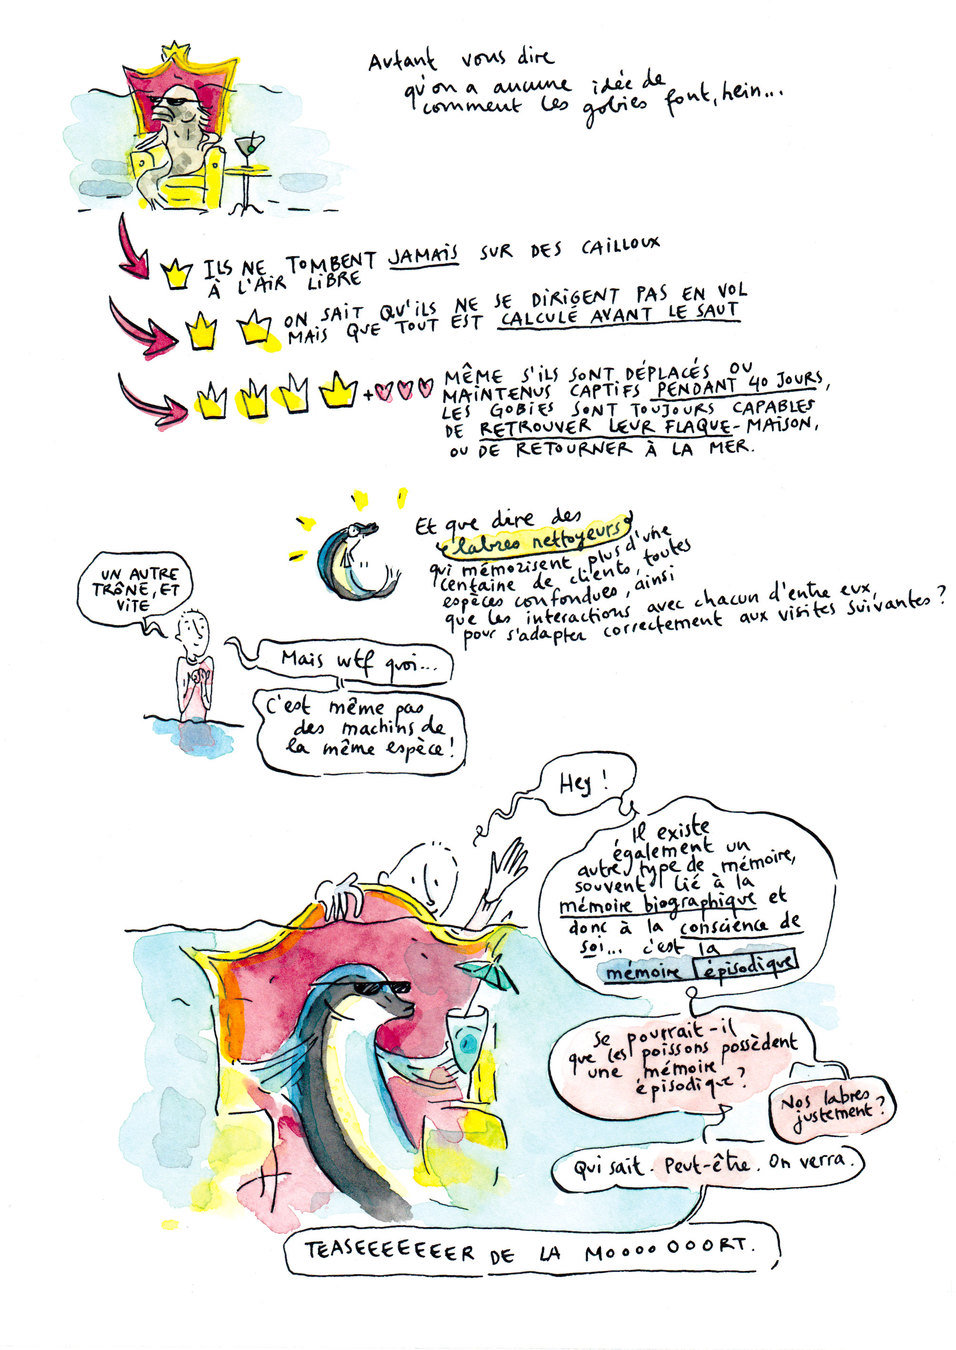 Autant vous dire
qu'on a aucune idée de
comment les gobies font, hein...
ILS NE TOMBENT JAMAIS SUR DES CAILLOUX
À L'AIR LIBRE
ON SAIT QU'ILS NE SE DIRIGENT PAS EN VOL
MAIS QUE TOUT EST CALCULÉ AVANT LE SAUT
+
MÊME S'ILS SONT DÉPLACÉS OU
MAINTENUS CAPTIFS PENDANT 40 JOURS,
LES GOBIES SONT TOUJOURS CAPABLES
DE RETROUVER LEUR FLAQUE-MAISON,
OU DE RETOURNER À LA MER.
Et que dire des
labres nettoyeurs
qui mémorisent plus d'une
centaine de clients, toutes
espèces confondues, ainsi
que les interactions avec chacun d'entre eux,
pour s'adapter correctement aux visites suivantes ?
UN AUTRE
TRÔNE, ET
VITE
Mais wtf quoi...
C'est même pas
des machins de
la même espèce !
Hey !
Il existe
également un
autre type de mémoire,
souvent lié à la
mémoire biographique et
donc à la conscience de
soi... c'est la
mémoire épisodique
Se pourrait-il
que les poissons possèdent
une mémoire
épisodique ?
Nos labres
justement ?
Qui sait. Peut-être. On verra.
TEASEEEEEEER DE LA MOOOOOOORT.